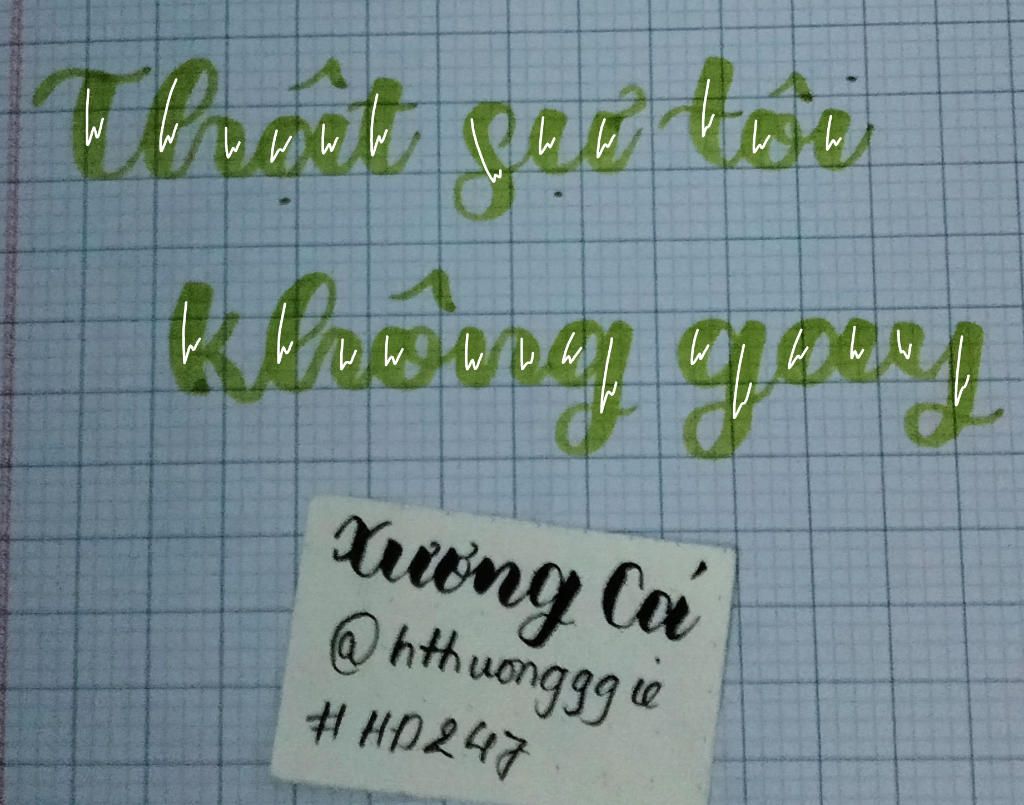 Thật sự tôi
không gay
Xương Cá
@hthuongggie
#HD247